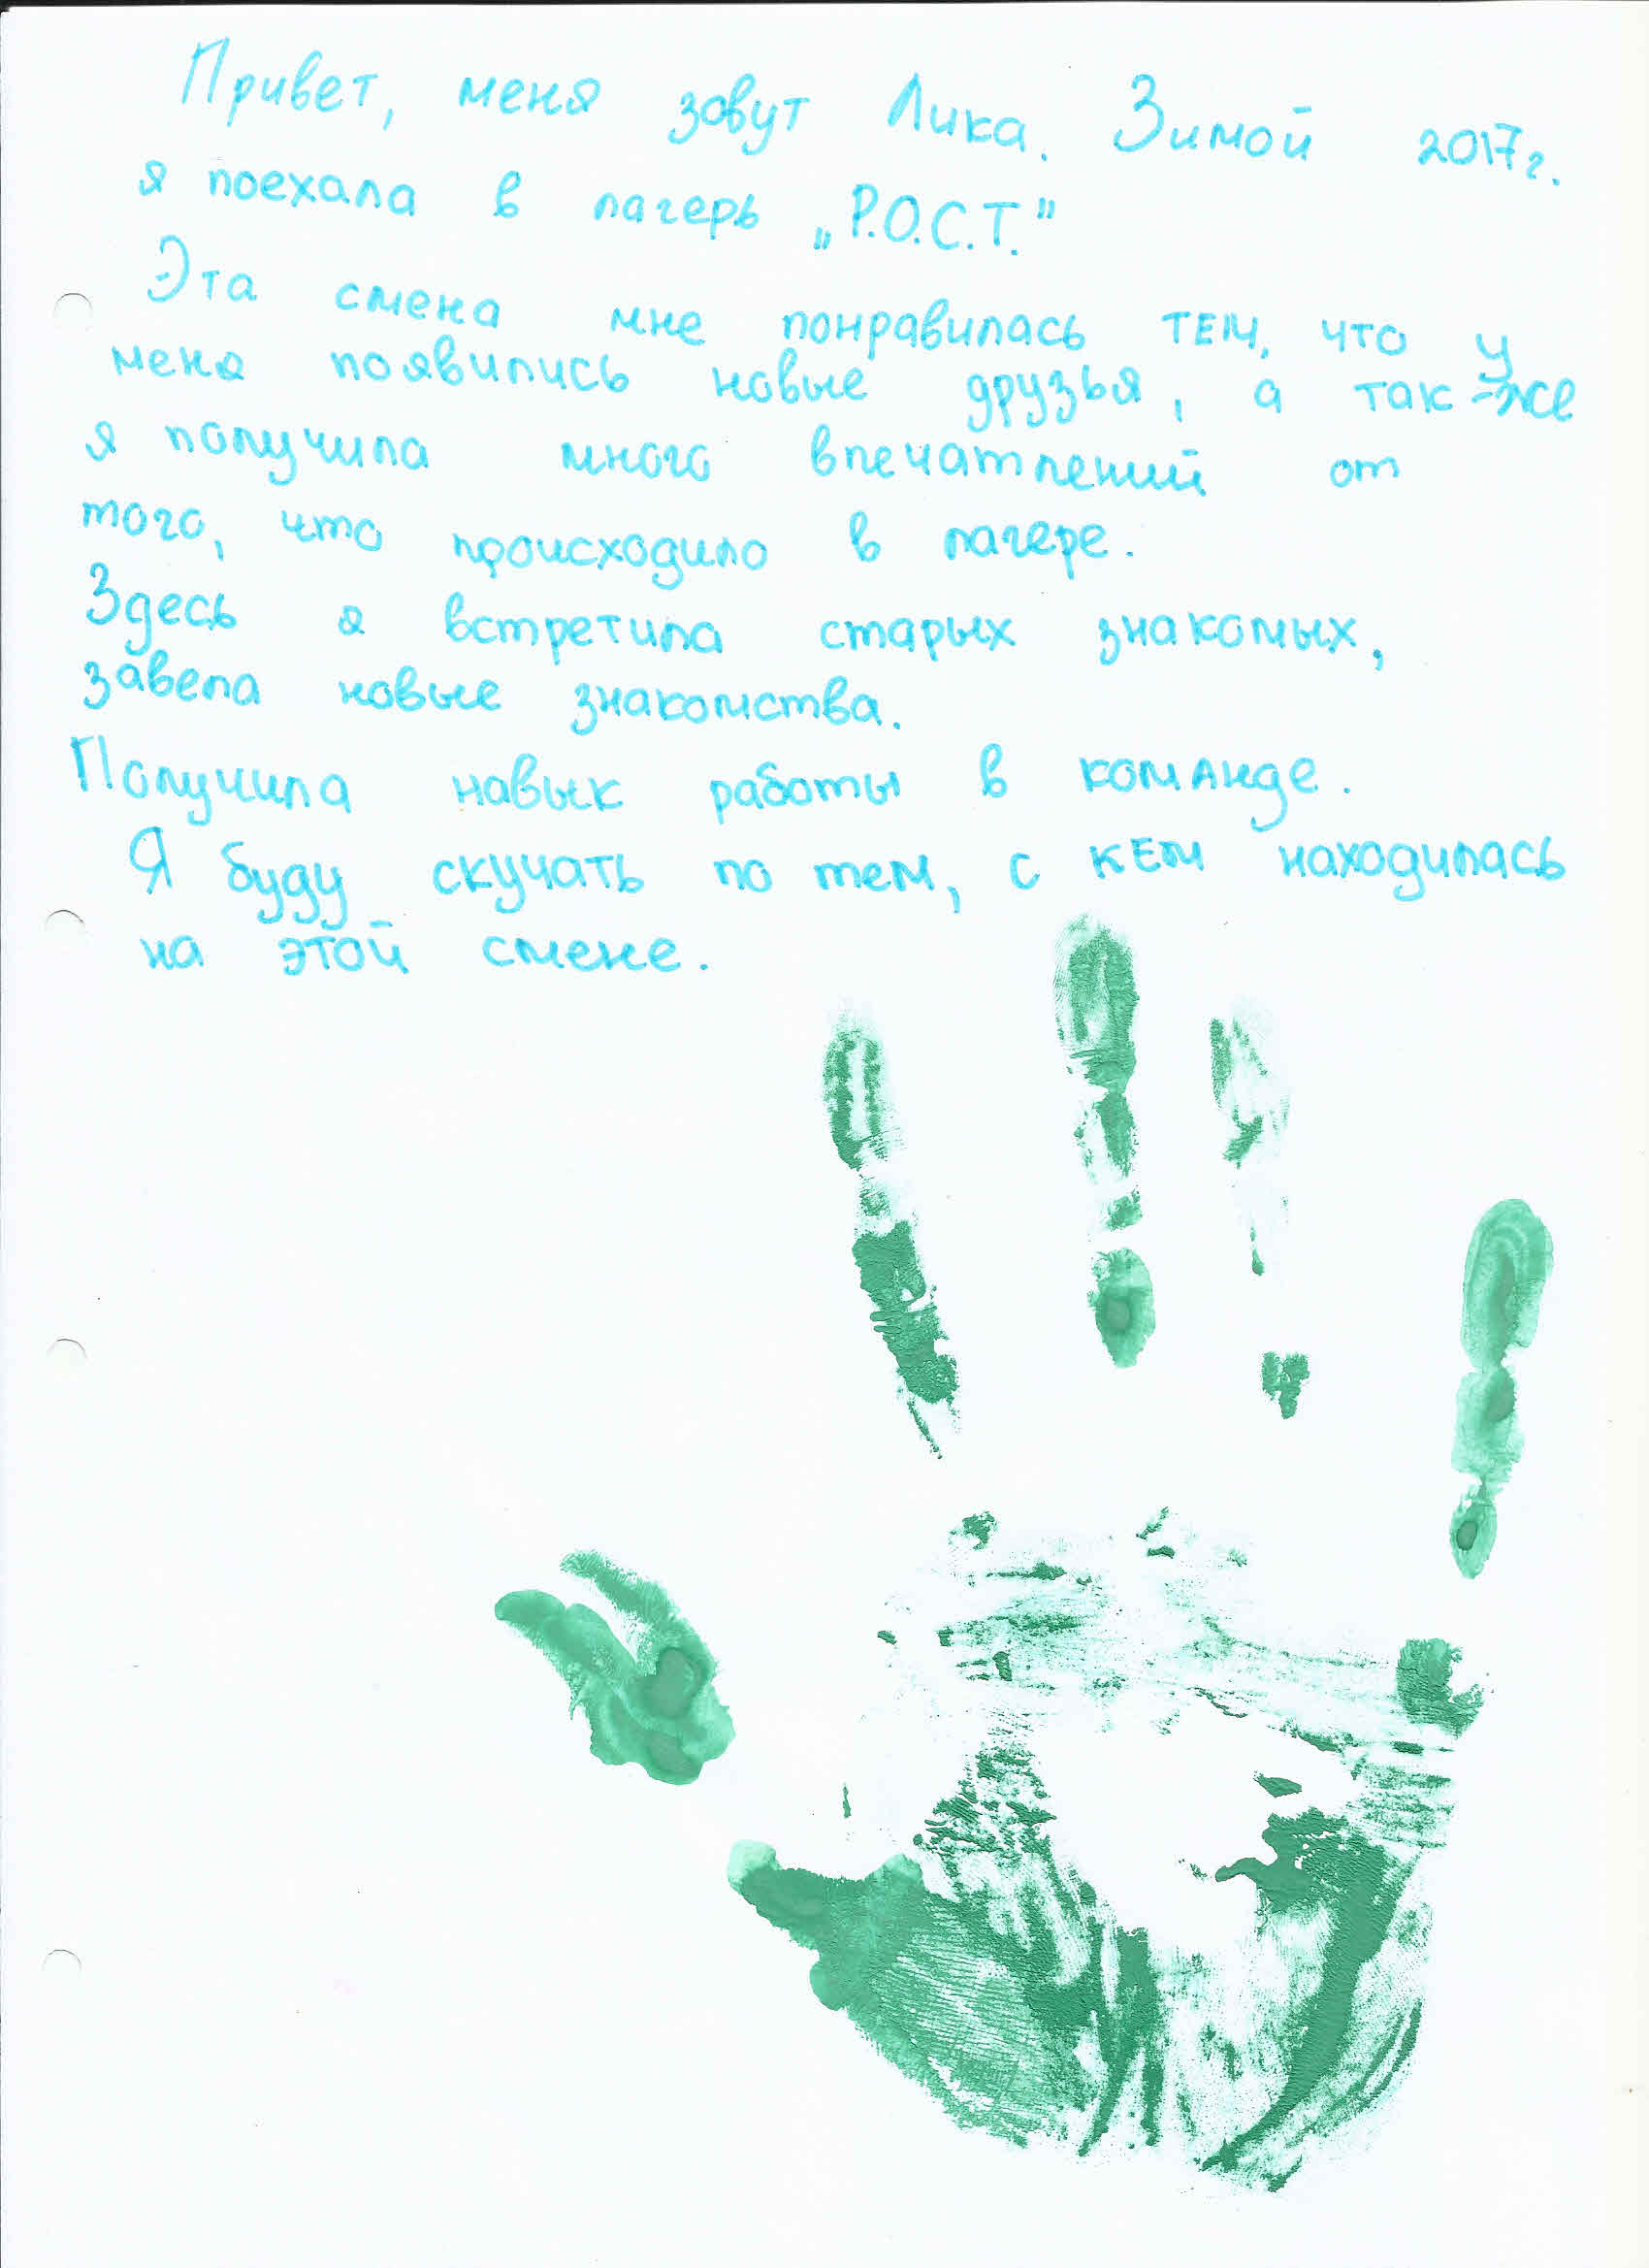 Привет, меня зовут Лика. Зимой 2017г.
я поехала в лагерь „Р.О.С.Т."
Эта смена мне понравилась тем, что у
меня появились новые друзья, а так-же
я получила много впечатлений от
того, что происходило в лагере.
Здесь я встретила старых знакомых,
завела новые знакомства.
Получила навык работы в команде.
Я буду скучать по тем, с кем находилась
на этой смене.